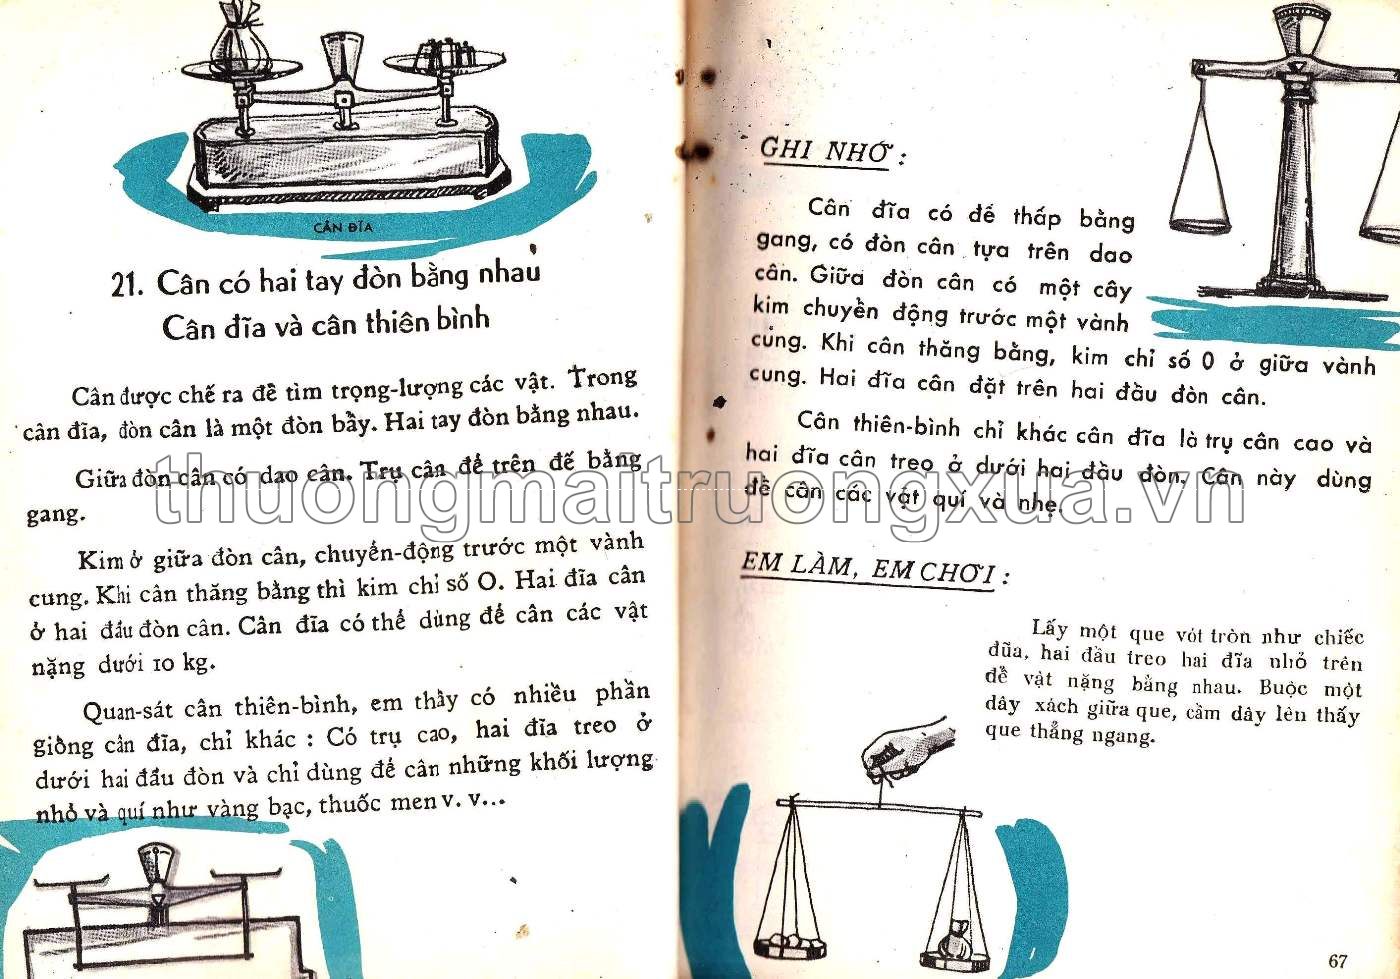 CÂN ĐĨA
21. Cân có hai tay đòn bằng nhau
Cân đĩa và cân thiên bình
Cân được chế ra để tìm trọng-lượng các vật. Trong
cân đĩa, đòn cân là một đòn bẩy. Hai tay đòn bằng nhau.
Giữa đòn cân có dao cân. Trụ cân để trên đế bằng
gang.
Kim ở giữa đòn cân, chuyển-động trước một vành
cung. Khi cân thăng bằng thì kim chỉ số O. Hai đĩa cân
ở hai đầu đòn cân. Cân đĩa có thể dùng để cân các vật
nặng dưới 10 kg.
Quan-sát cân thiên-bình, em thấy có nhiều phần
giống cân đĩa, chỉ khác : Có trụ cao, hai đĩa treo ở
dưới hai đầu đòn và chỉ dùng để cân những khối lượng
nhỏ và quí như vàng bạc, thuốc men v. v...
GHI NHỚ :
Cân đĩa có đế thấp bằng
gang, có đòn cân tựa trên dao
cân. Giữa đòn cân có một cây
kim chuyển động trước một vành
cung. Khi cân thăng bằng, kim chỉ số 0 ở giữa vành
cung. Hai đĩa cân đặt trên hai đầu đòn cân.
Cân thiên-bình chỉ khác cân đĩa là trụ cân cao và
hai đĩa cân treo ở dưới hai đầu đòn. Cân này dùng
để cân các vật quí và nhẹ.
thuongmaitruongxua.vn
EM LÀM, EM CHƠI :
Lấy một que vót tròn như chiếc
đũa, hai đầu treo hai đĩa nhỏ trên
để vật nặng bằng nhau. Buộc một
dây xách giữa que, cầm dây lên thấy
que thẳng ngang.
67